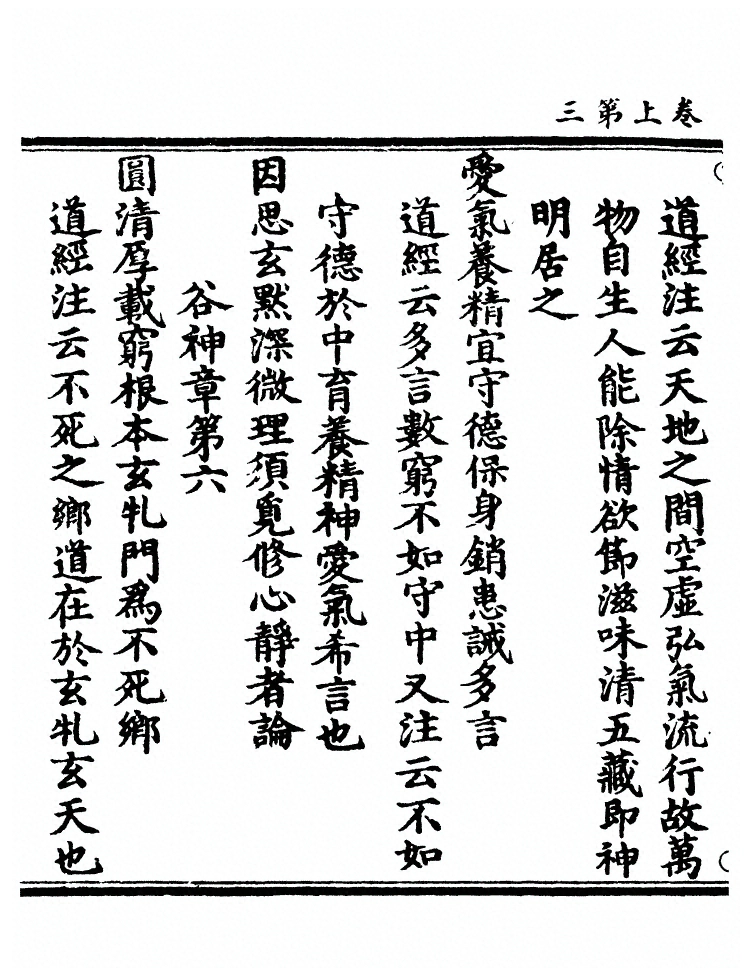 卷上第三
道經注云天地之間空虛弘氣流行故萬
物自生人能除情欲節滋味清五藏即神
明居之
愛氣養精宜守德保身銷患誡多言
道經云多言數窮不如守中又注云不如
守德於中育養精神愛氣希言也
因思玄默深微理須覓修心靜者論
谷神章第六
圓清厚載窮根本玄牝門為不死鄉
道經注云不死之鄉道在於玄牝玄天也